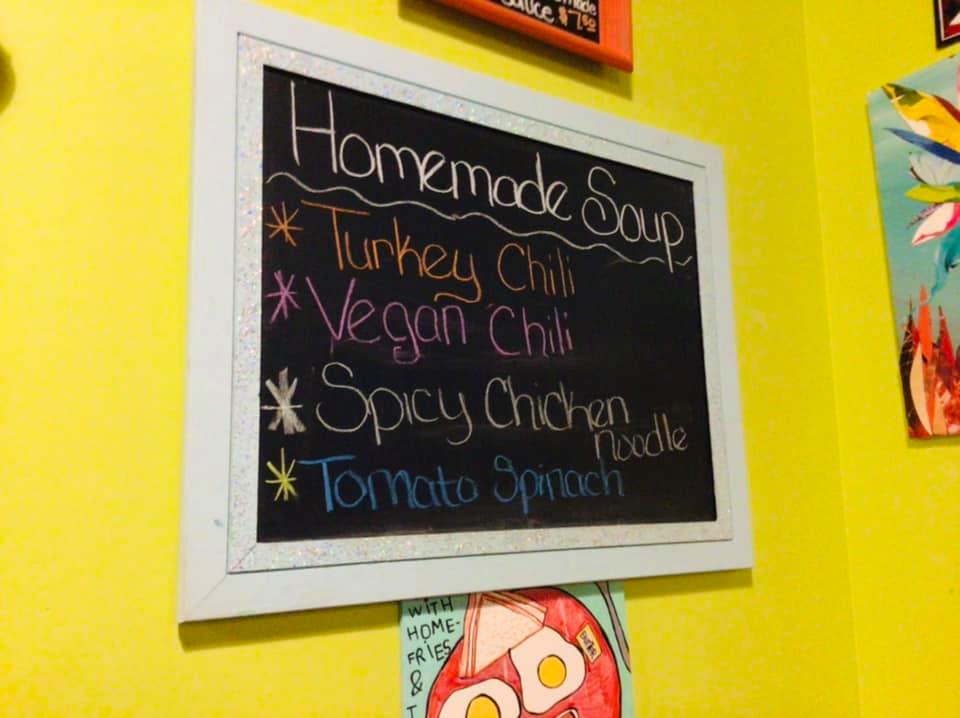 sauce $7.50
Homemade Soup
* Turkey Chili
* Vegan Chili
* Spicy Chicken
noodle
* Tomato Spinach
WITH
HOME-
FRIES
&